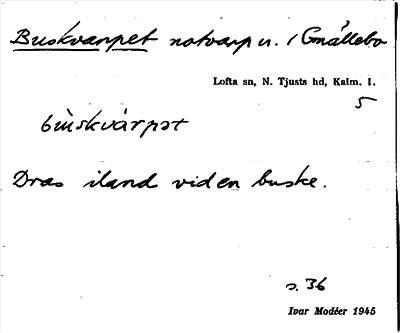 Buskvarpet notvarp u. / Gnällebo
Lofta sn, N. Tjusts hd, Kalm. l.
5
bùskvárpət
Dras iland vid en buske.
s. 36
Ivar Modéer 1945